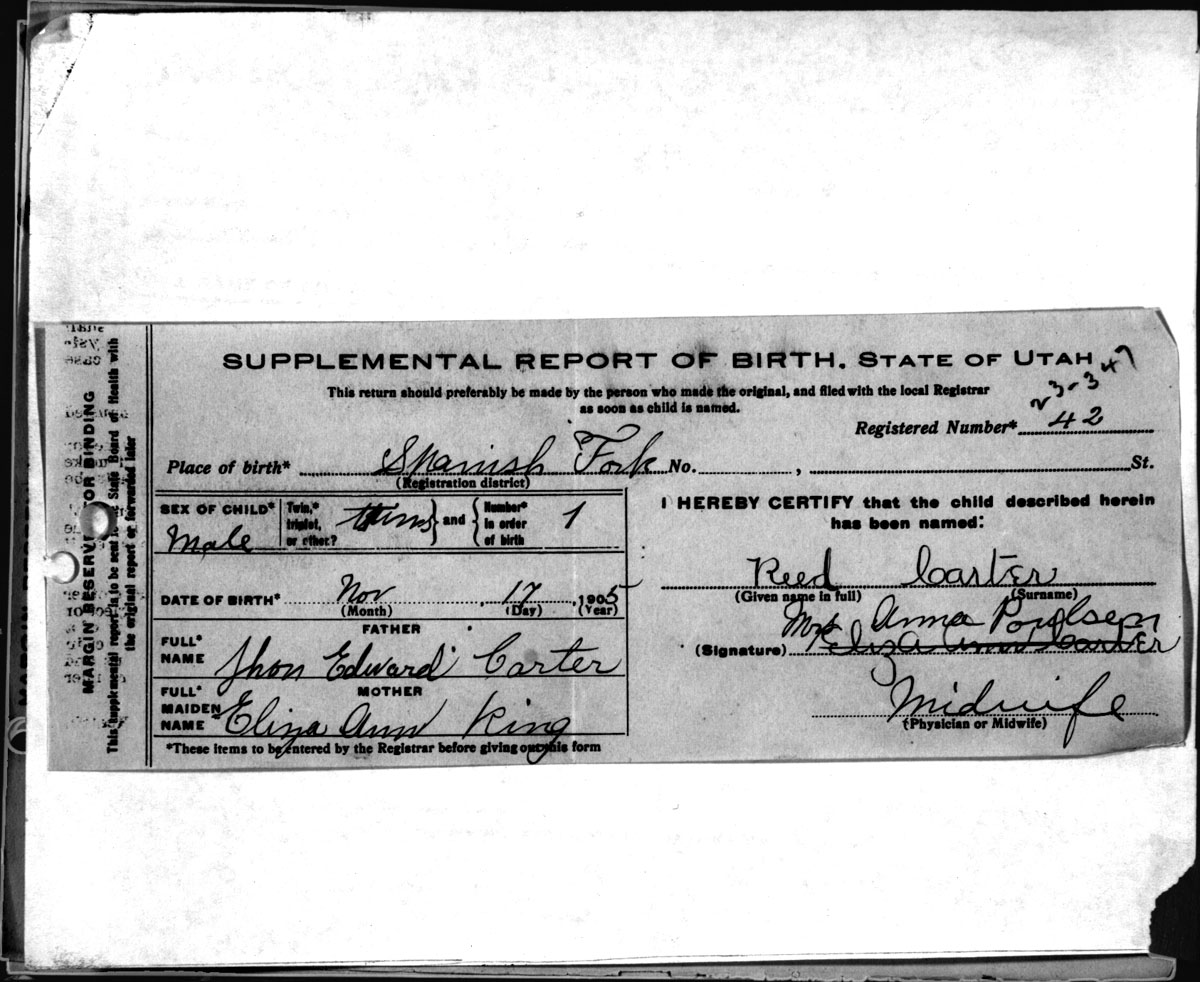 SUPPLEMENTAL REPORT OF BIRTH. STATE OF UTAH
This return should preferably be made by the person who made the original, and filed with the local Registrar
as soon as child is named.
23-347
Registered Number* 42
Place of birth* Spanish Fork No. , St.
(Registration district)
SEX OF CHILD* Male
Twin,* triplet, or other? and Number* in order of birth 1
DATE OF BIRTH* Nov , 17 , 1905
(Month) (Day) (Year)
FATHER
FULL* NAME Jhon Edward Carter
MOTHER
FULL* MAIDEN NAME Eliza Ann King
*These items to be entered by the Registrar before giving out this form
I HEREBY CERTIFY that the child described herein
has been named:
Reed Carter
(Given name in full) (Surname)
Mrs Anna Poulsen
(Signature) Eliza Ann Carter
Midwife
(Physician or Midwife)
MARGIN RESERVED FOR BINDING
This supplemental report is to be sent to the State Board of Health with
the original report or forwarded later